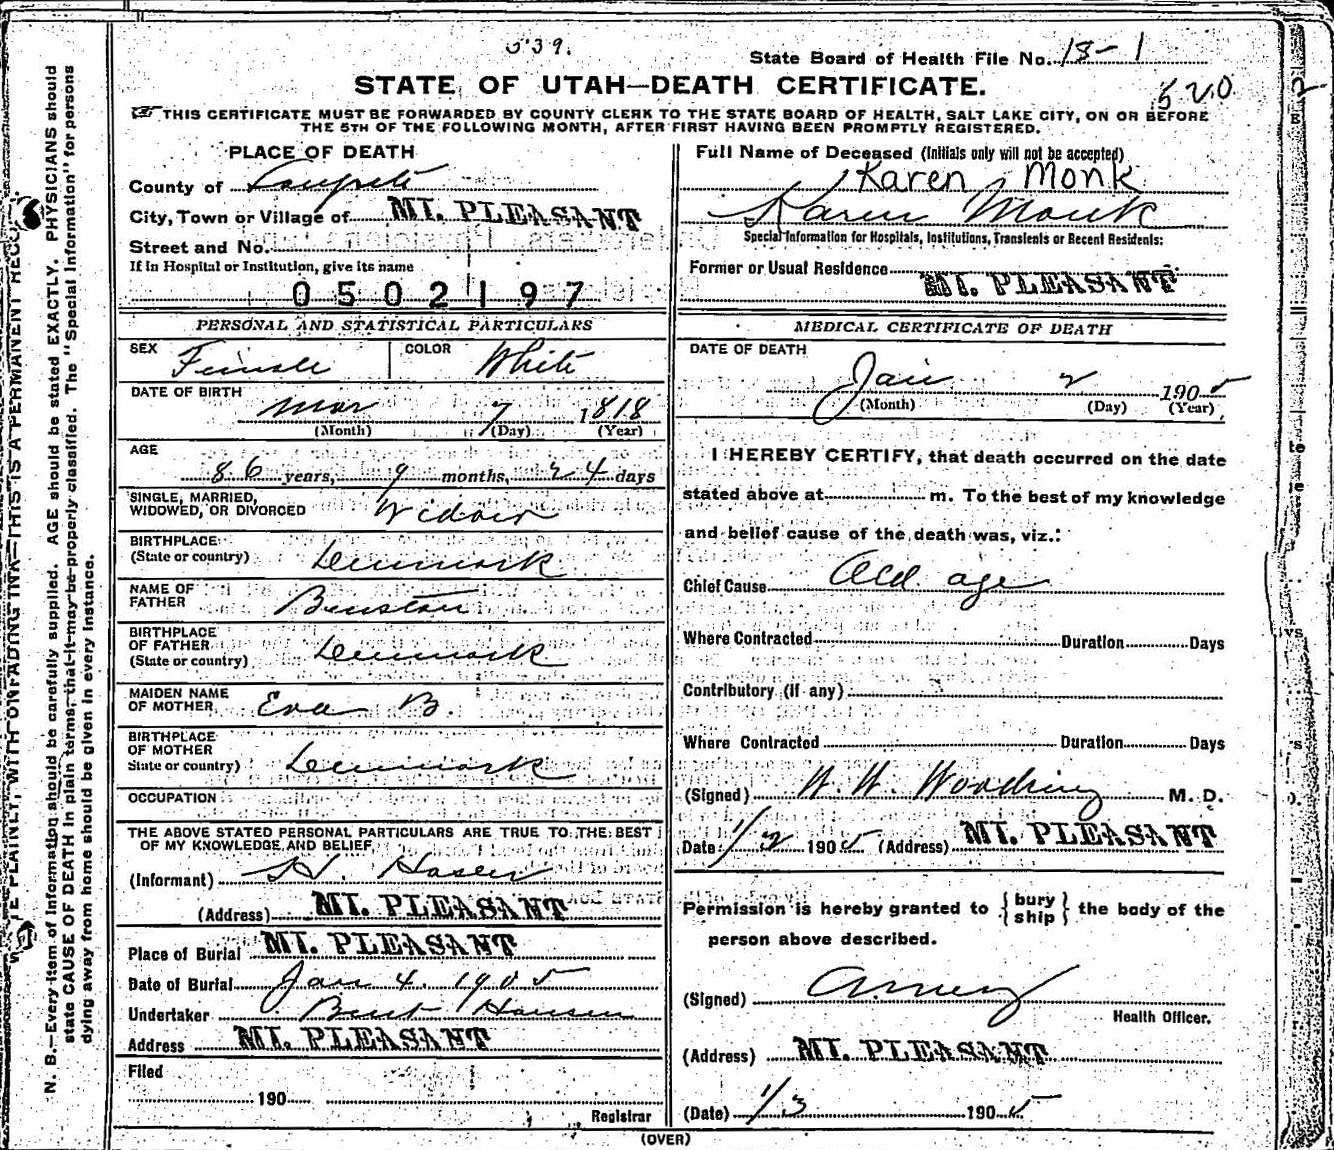 539.
State Board of Health File No. 18-1
STATE OF UTAH—DEATH CERTIFICATE.
520
THIS CERTIFICATE MUST BE FORWARDED BY COUNTY CLERK TO THE STATE BOARD OF HEALTH, SALT LAKE CITY, ON OR BEFORE
THE 5TH OF THE FOLLOWING MONTH, AFTER FIRST HAVING BEEN PROMPTLY REGISTERED.
PLACE OF DEATH
County of Sanpete
City, Town or Village of MT. PLEASANT
Street and No.
If in Hospital or Institution, give its name
0502197
PERSONAL AND STATISTICAL PARTICULARS
SEX Female COLOR White
DATE OF BIRTH
Mar 7 1818
(Month) (Day) (Year)
AGE
86 years, 9 months, 24 days
SINGLE, MARRIED,
WIDOWED, OR DIVORCED Widow
BIRTHPLACE
(State or country) Denmark
NAME OF
FATHER
BIRTHPLACE
OF FATHER
(State or country) Denmark
MAIDEN NAME
OF MOTHER Eva B.
BIRTHPLACE
OF MOTHER
State or country) Denmark
OCCUPATION
THE ABOVE STATED PERSONAL PARTICULARS ARE TRUE TO THE BEST
OF MY KNOWLEDGE AND BELIEF
(Informant) H.
(Address) MT. PLEASANT
Place of Burial MT. PLEASANT
Date of Burial Jan 4. 1905
Undertaker Bent Hansen
Address MT. PLEASANT
Filed
190
Registrar
Full Name of Deceased (Initials only will not be accepted)
Karen Monk
Karen Monk
Special Information for Hospitals, Institutions, Transients or Recent Residents:
Former or Usual Residence
MT. PLEASANT
MEDICAL CERTIFICATE OF DEATH
DATE OF DEATH
Jan 2 1905
(Month) (Day) (Year)
I HEREBY CERTIFY, that death occurred on the date
stated above at m. To the best of my knowledge
and belief cause of the death was, viz.:
Chief Cause Old age
Where Contracted Duration Days
Contributory (if any)
Where Contracted Duration Days
(Signed) W. W. Woodring M. D.
Date 1/2 1905 (Address) MT. PLEASANT
Permission is hereby granted to { bury
ship } the body of the
person above described.
(Signed)
Health Officer.
(Address) MT. PLEASANT
(Date) 1/3 1905
(OVER)
N. B.—Every item of information should be carefully supplied. AGE should be stated EXACTLY. PHYSICIANS should
state CAUSE OF DEATH in plain terms, that it may be properly classified. The "Special Information" for persons
dying away from home should be given in every instance.